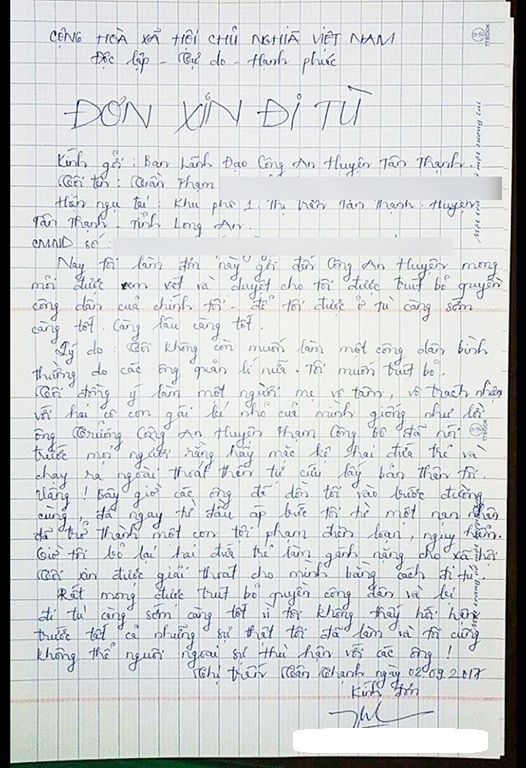 CỘNG HOÀ XÃ HỘI CHỦ NGHĨA VIỆT NAM
Độc lập - Tự do - Hạnh phúc
ĐƠN XIN ĐI TÙ
Kính gởi : Ban Lãnh Đạo Công An Huyện Tân Thạnh.
Tôi tên : Trần Phạm
Hiện ngụ tại : Khu phố 1. Thị Trấn Tân Thạnh. Huyện
Tân Thạnh. Tỉnh Long An.
CMND số :
Nay tôi làm đơn này gởi đến Công An Huyện mong
mỏi được xem xét và duyệt cho tôi được trút bỏ quyền
công dân của chính tôi - để tôi được ở tù càng sớm
càng tốt. Càng lâu càng tốt.
Lý do : Tôi không còn muốn làm một công dân bình
thường do các ông quản lí nữa. Tôi muốn trút bỏ.
Tôi đồng ý làm một người mẹ vô tâm, vô trách nhiệm
với hai cô con gái bé nhỏ của mình giống như lời
ông Trưởng Công An Huyện Phạm Công bố đã nói
trước mọi người rằng hãy mặc kệ hai đứa trẻ và
chạy ra ngoài thoát thân tự cứu lấy bản thân tôi.
Vâng ! Bây giờ các ông đã dồn tôi vào bước đường
cùng, đã ngay từ đầu áp bức tôi từ một nạn nhân
đã trở thành một con tội phạm điên loạn, nguy hiểm.
Giờ tôi bỏ lại hai đứa trẻ làm gánh nặng cho xã hội
Tôi xin được giải thoát cho mình bằng cách đi tù.
Rất mong được trút bỏ quyền công dân và lại
đi tù càng sớm càng tốt vì tôi không thấy hối hận
trước tất cả những sự thật tôi đã làm và tôi cũng
không thể nguôi ngoai sự thù hận với các ông !
Thị trấn Tân Thạnh ngày 02.09.2017
Kính đơn